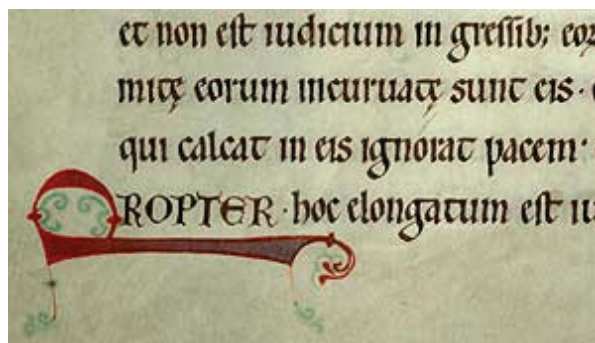 et non est iudicium in gressib; eor
mitę eorum incuruatę sunt eis · 
qui calcat in eis ignorat pacem ·
PROPTER · hoc elongatum est iu